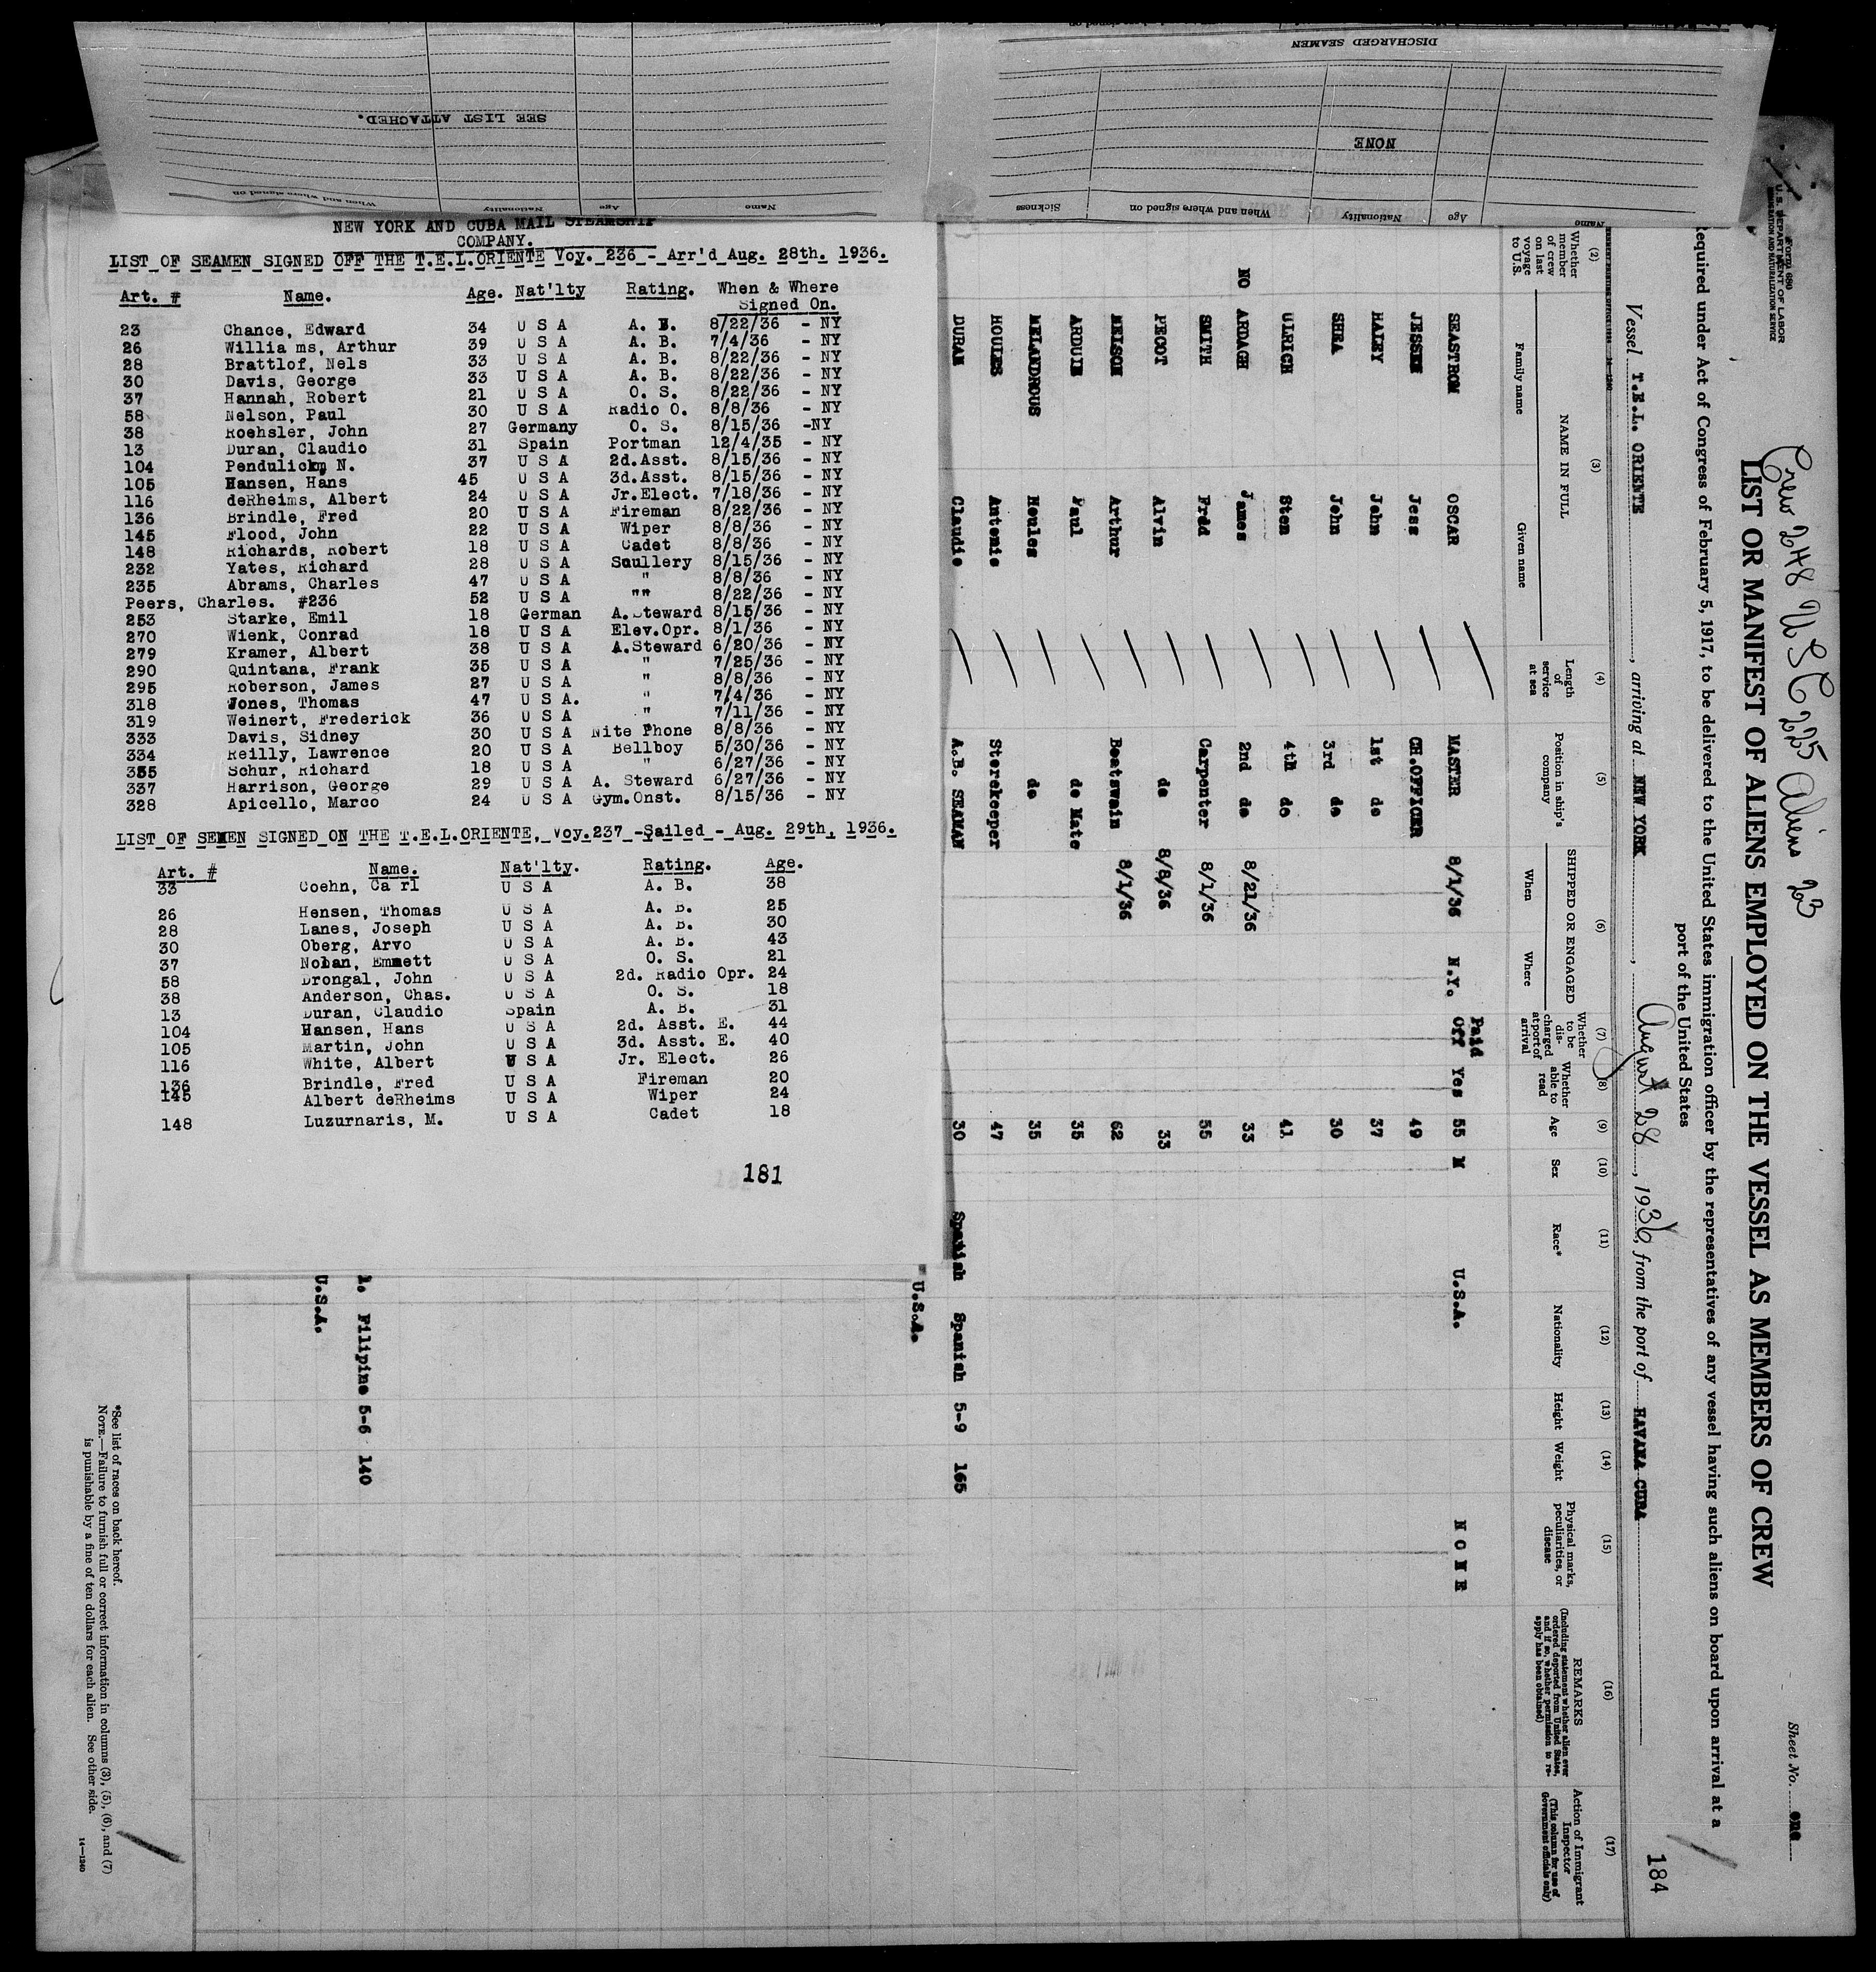 DISCHARGED SEAMEN
SEE LIST ATTACHED.
NONE
When and where signed on
Nationality
Age
Name
Sickness
When and where signed on
Nationality
Age
Name
NEW YORK AND CUBA MAIL STEAMSHIP
COMPANY.
LIST OF SEAMEN SIGNED OFF THE T.E.L.ORIENTE Voy. 236 - Arr'd Aug. 28th. 1936.
Art. # Name. Age. Nat'lty Rating. When & Where
Signed On.
23 Chance, Edward 34 U S A A. B. 8/22/36 - NY
26 Willia ms, Arthur 39 U S A A. B. 7/4/36 - NY
28 Brattlof, Nels 33 U S A A. B. 8/22/36 - NY
30 Davis, George 33 U S A A. B. 8/22/36 - NY
37 Hannah, Robert 21 U S A O. S. 8/22/36 - NY
58 Nelson, Paul 30 U S A Radio O. 8/8/36 - NY
38 Roehsler, John 27 Germany O. S. 8/15/36 -NY
13 Duran, Claudio 31 Spain Portman 12/4/35 - NY
104 Pendulickm N. 37 U S A 2d.Asst. 8/15/36 - NY
105 Hansen, Hans 45 U S A 3d.Asst. 8/15/36 - NY
116 deRheims, Albert 24 U S A Jr.Elect. 7/18/36 - NY
136 Brindle, Fred 20 U S A Fireman 8/22/36 - NY
145 Flood, John 22 U S A Wiper 8/8/36 - NY
148 Richards, Robert 18 U S A Cadet 8/8/36 - NY
232 Yates, Richard 28 U S A Scullery 8/15/36 - NY
235 Abrams, Charles 47 U S A " 8/8/36 - NY
Peers, Charles. #236 52 U S A "" 8/22/36 - NY
253 Starke, Emil 18 German A.Steward 8/15/36 - NY
270 Wienk, Conrad 18 U S A Elev.Opr. 8/1/36 - NY
279 Kramer, Albert 38 U S A A.Steward 6/20/36 - NY
290 Quintana, Frank 35 U S A " 7/25/36 - NY
295 Roberson, James 27 U S A " 8/8/36 - NY
318 Jones, Thomas 47 U S A. " 7/4/36 - NY
319 Weinert, Frederick 36 U S A " 7/11/36 - NY
333 Davis, Sidney 30 U S A Nite Phone 8/8/36 - NY
334 Reilly, Lawrence 20 U S A Bellboy 5/30/36 - NY
335 Schur, Richard 18 U S A " 6/27/36 - NY
337 Harrison, George 29 U S A A. Steward 6/27/36 - NY
328 Apicello, Marco 24 U S A Gym.Onst. 8/15/36 - NY
LIST OF SEMEN SIGNED ON THE T.E.L.ORIENTE, Voy.237 -Sailed - Aug. 29th, 1936.
Art. # Name. Nat'lty. Rating. Age.
33 Coehn, Ca rl U S A A. B. 38
26 Hensen, Thomas U S A A. B. 25
28 Lanes, Joseph U S A A. B. 30
30 Oberg, Arvo U S A A. B. 43
37 Nolan, Emmett U S A O. S. 21
58 Drongal, John U S A 2d. Radio Opr. 24
38 Anderson, Chas. U S A O. S. 18
13 Duran, Claudio Spain A. B. 31
104 Hansen, Hans U S A 2d. Asst. E. 44
105 Martin, John U S A 3d. Asst. E. 40
116 White, Albert U S A Jr. Elect. 26
136 Brindle, Fred U S A Fireman 20
145 Albert deRheims U S A Wiper 24
148 Luzurnaris, M. U S A Cadet 18
181
Form 680
U.S. DEPARTMENT OF LABOR
IMMIGRATION AND NATURALIZATION SERVICE
Sheet No. one
Crew 248 USC 225 Aliens 23
LIST OR MANIFEST OF ALIENS EMPLOYED ON THE VESSEL AS MEMBERS OF CREW
Required under Act of Congress of February 5, 1917, to be delivered to the United States immigration officer by the representatives of any vessel having such aliens on board upon arrival at a
port of the United States
184
Vessel T.E.L. ORIENTE, arriving at NEW YORK, August 28, 1936, from the port of HAVANA CUBA
(2) (3) (4) (5) (6) (7) (8) (9) (10) (11) (12) (13) (14) (15) (16) (17)
Whether member of crew on last voyage to U.S.
NAME IN FULL
Family name Given name
Length of service at sea
Position in ship's company
SHIPPED OR ENGAGED
When Where
Whether to be discharged at port of arrival
Whether able to read
Age
Sex
Race*
Nationality
Height
Weight
Physical marks, peculiarities, or disease
REMARKS
(Including statement whether alien ever ordered deported from United States, and if so, whether permission to reapply has been obtained)
Action of Immigrant Inspector
(This column for use of Government officials only)
SEASTROM OSCAR MASTER 8/1/36 N.Y. Paid Off Yes 55 M U.S.A. N O N E
JESSEN Jess CH.OFFICER 49
HALEY John 1st do 37
SHEA John 3rd do 30
ULRICH Sten 4th do 41
NO ARDAGH James 2nd do 8/21/36 33
SMITH Fred Carpenter 8/1/36 55
PECOT Alvin do 8/8/36 33
NELSON Arthur Boatswain 8/1/36 62
ARDUIN Paul do Mate 35
MELANDROUS Houles do 35
HOULES Antonio Storekeeper 47
DURAN Claudio A.B. SEAMAN 30 Spanish Spanish 5-9 165
U.S.A.
1. Filipino 5-6 140
U.S.A.
*See list of races on back hereof.
NOTE.—Failure to furnish full or correct information in columns (3), (5), (6), and (7)
is punishable by a fine of ten dollars for each alien. See other side.
14—1240